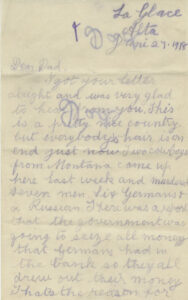 La Glace
Alta
April 27, 1918
Dear Dad.
I got your letter
alright and was very glad
to hear from you. This
is a pretty nice country
but everybody's hair is on
end just now. Two cowboys
from Montana come up
here last week and murdered
seven men six Germans &
a Russian There was a report
out that the government was
going to seize all money
that German had in
the bank so they all
drew out their money
Thats the reason for